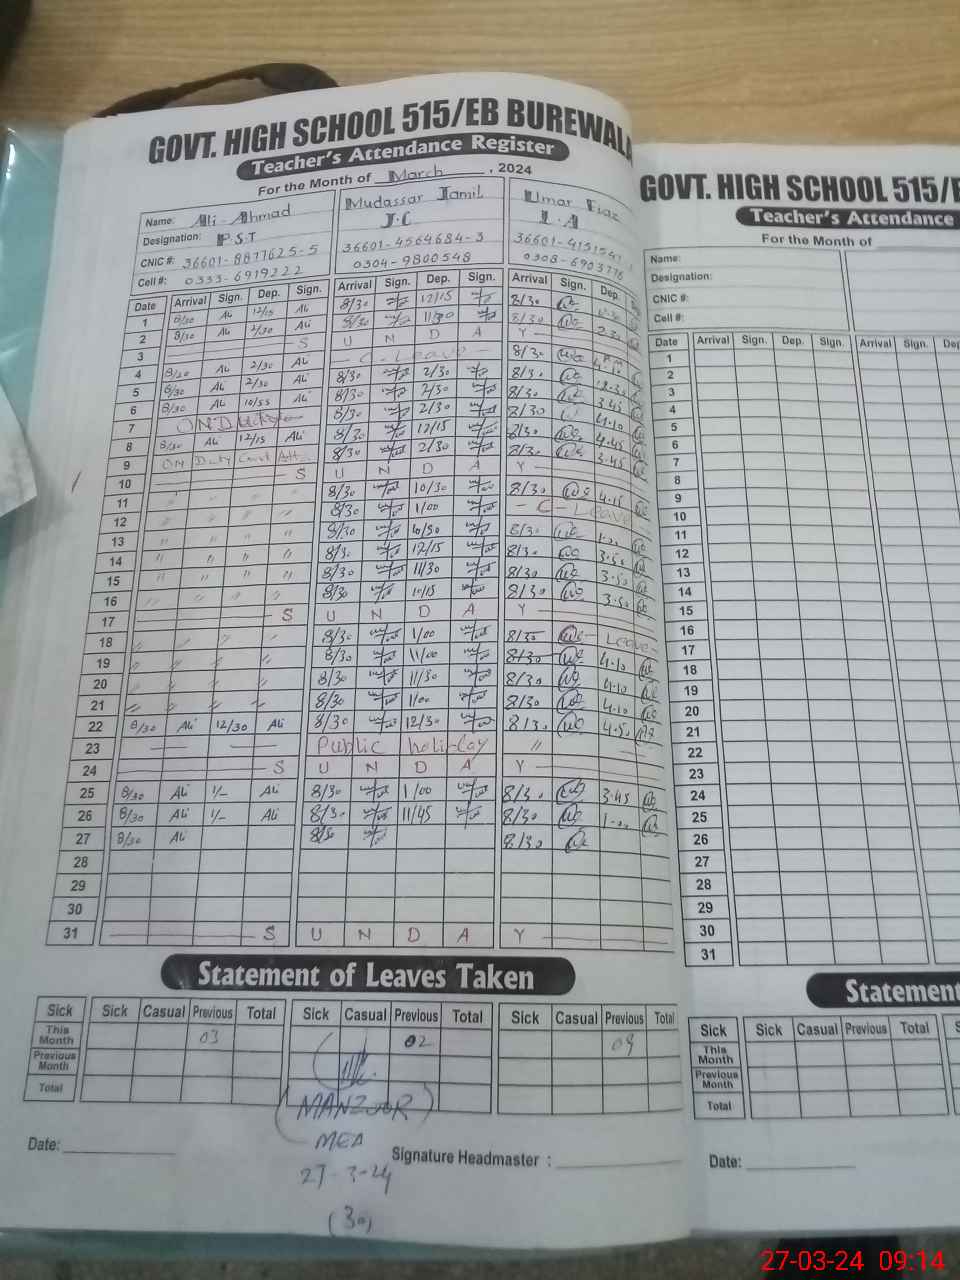 GOVT. HIGH SCHOOL 515/EB BUREWALA
Teacher's Attendance Register
For the Month of March, 2024
Name: Ali Ahmad
Designation: P.S.T
CNIC #: 36601-8877625-5
Cell #: 0333-6919222
Mudassar Jamil
J.C
36601-4564684-3
0304-9800548
Umar Fiaz
L.A
Date Arrival Sign. Dep. Sign. Arrival Sign. Dep. Sign. Arrival Sign. Dep.
1 8/30 Ali 12/15 Ali 8/30 12/15 8/30
2 8/30 Ali 2/30 Ali 8/30 8/30
3 S U N D A Y
4 8/30 Ali 2/30 Ali C-Leave 8/30
5 8/30 Ali 2/30 Ali 8/30 2/30 8/30
6 8/30 Ali 10/55 Ali 8/30 2/30 8/30 3.45
7 8/30 2/30 8/30 4.10
8 8/30 Ali 12/15 Ali 8/30 12/15 8/30 4.45
9 ON Duty 8/30 2/30 8/30 3.45
10 S U N D A Y
11 " " " " 8/30 10/30 8/30 4.15
12 " " " " 8/30 1/00 C-Leave
13 " " " " 8/30 8/30
14 " " " " 8/30 12/15 8/30 3.50
15 " " " " 8/30 11/30 8/30 3.50
16 " " " " 8/30 10/15 8/30 3.50
17 S U N D A Y
18 " " " " 8/30 1/00 8/30 Leave
19 " " " " 8/30 11/00 8/30 4.10
20 " " " " 8/30 11/30 8/30 4.10
21 " " " " 8/30 1/00 8/30 4.10
22 8/30 Ali 12/30 Ali 8/30 12/30 8/30 4.55
23 Public holiday "
24 S U N D A Y
25 8/30 Ali 1/- Ali 8/30 1/00 8/30 3.45
26 8/30 Ali 1/- Ali 8/30 11/45 8/30 1.00
27 8/30 Ali 8/30 8/30
28
29
30
31 S U N D A Y
Statement of Leaves Taken
Sick Sick Casual Previous Total Sick Casual Previous Total Sick Casual Previous Total
This Month 03 02 09
Previous Month
Total
MANZOOR
MEA
27-3-24
(30)
Date:
Signature Headmaster :
GOVT. HIGH SCHOOL 515/E
Teacher's Attendance
For the Month of
Name:
Designation:
CNIC #:
Cell #:
Date Arrival Sign. Dep. Sign. Arrival Sign. Dep
1
2
3
4
5
6
7
8
9
10
11
12
13
14
15
16
17
18
19
20
21
22
23
24
25
26
27
28
29
30
31
Statement
Sick Sick Casual Previous Total S
This Month
Previous Month
Total
Date:
27-03-24 09:14